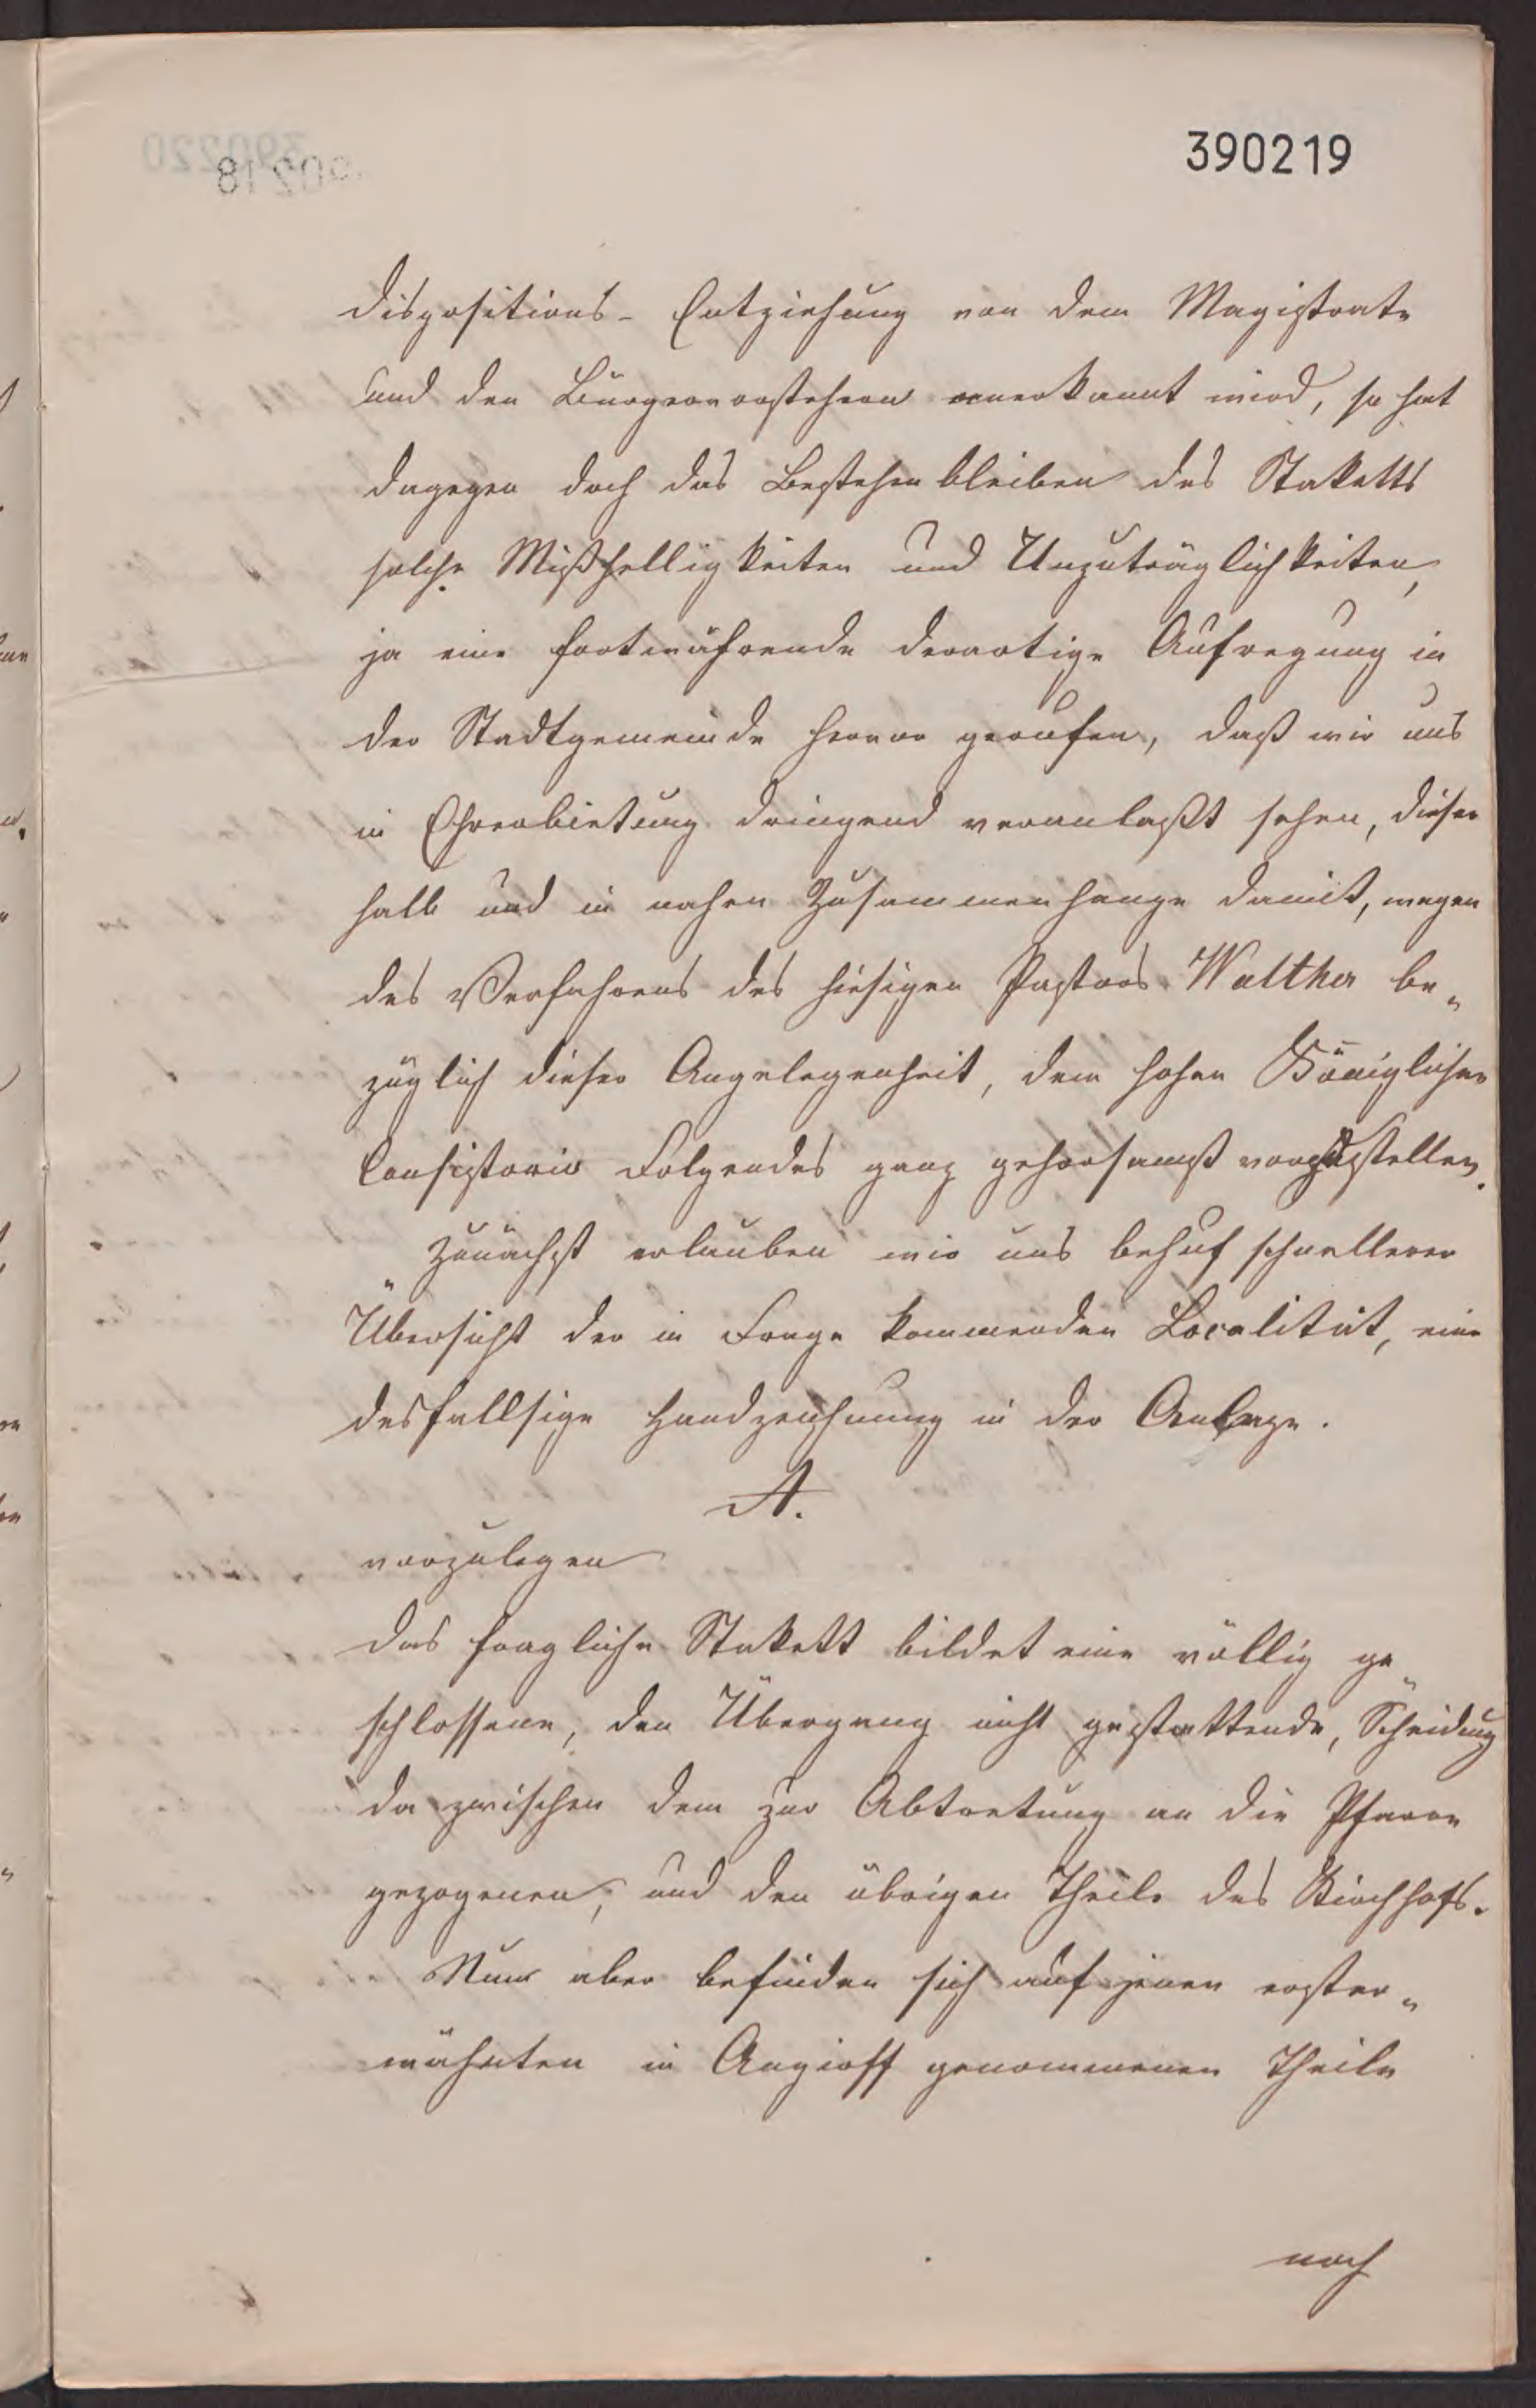 390219
Dispositions- Entziehung von dem Magistrate
und den Bürgervorstehern anerkannt wird, so hat
dagegen doch das Bestehenbleiben des Staketts
solche Mißhelligkeiten und Unzuträglichkeiten,
ja eine fortwährende derartige Aufregung in
der Stadtgemeinde hervor gerufen, daß wir uns
in Ehrerbietung dringend veranlaßt sehen, dieser
halb und in nahen Zusammenhange damit, wegen
des Verfahrens des hiesigen Pastors Walther be„
züglich dieser Angelegenheit, dem hohen Königlichen
Consistorio Folgendes ganz gehorsamst vorzustellen.
Zunächst erlauben wir uns behuf schnellerer
Übersicht der in Frage kommenden Localität, eine
desfallsige Handzeichnung in der Anlage.
A.
vorzulegen
Das fragliche Stakett bildet eine völlig ge„
schlossene, den Übergang nicht gestattende, Scheidung
da zwischen dem zur Abtretung an die Pfarre
gezogenen, und den übrigen Theile des Kirchhofs.
Nun aber befinden sich auf jenen erster„
wähnten in Angriff genommenen Theile
noch